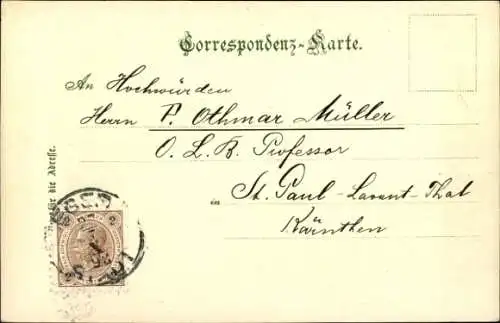 Correspondenz-Karte.
An Hochwürden
Herrn P. Othmar Müller
O. L. B. Professor
in St. Paul - Lavant-Thal
Kärnthen
für die Adresse.
2